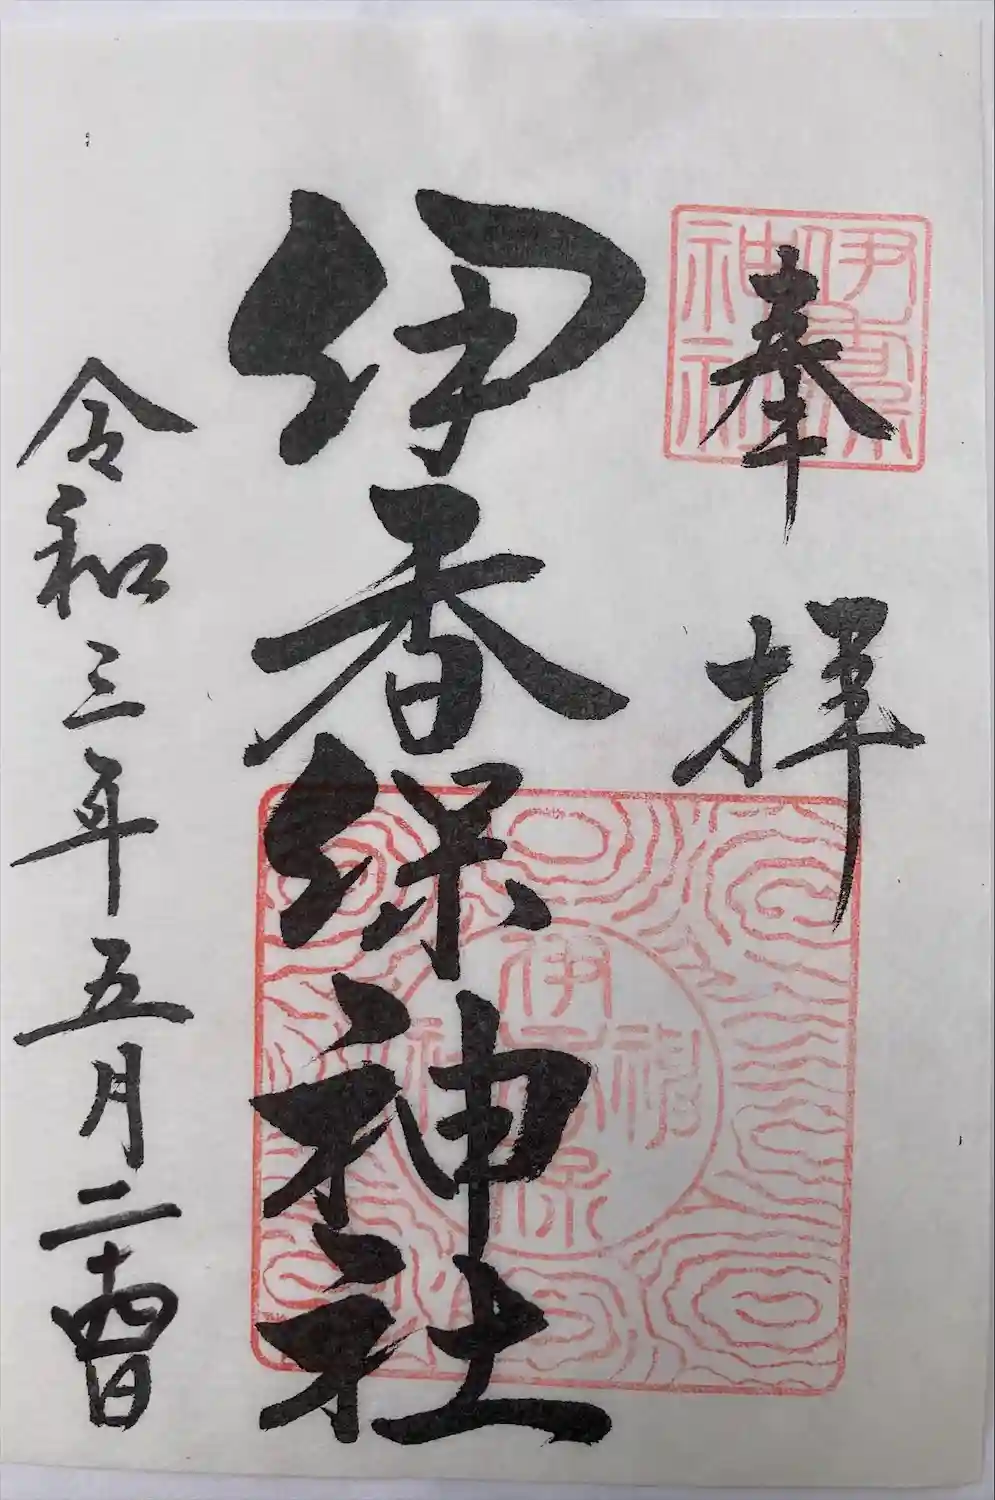 奉拝
伊香保神社
令和三年五月二十四日
伊香保神社